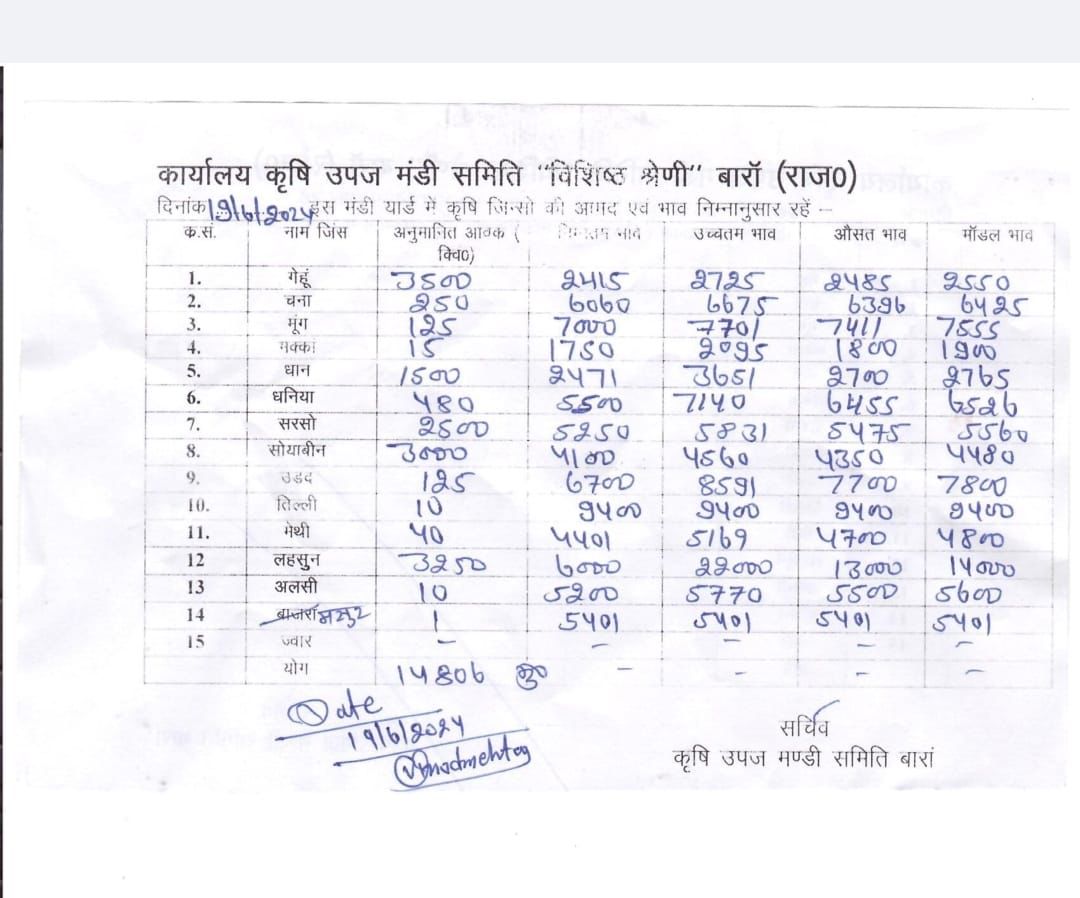 कार्यालय कृषि उपज मंडी समिति "विशिष्ठ श्रेणी" बारॉ (राज0)
दिनांक 19/6/2024 इस मंडी यार्ड में कृषि जिन्सो की आमद एवं भाव निम्नानुसार रहें –
क.सं. नाम जिंस अनुमानित आवक ( क्विं0) निम्नतम भाव उच्चतम भाव औसत भाव मॉडल भाव
1. गेहूं 3500 2415 2725 2485 2550
2. चना 250 6060 6675 6396 6425
3. मूंग 125 7000 7701 7411 7555
4. मक्कां 15 1750 2095 1800 1900
5. धान 1500 2471 3651 2700 2765
6. धनिया 480 5500 7140 6455 6526
7. सरसो 2500 5250 5831 5475 5560
8. सोयाबीन 3000 4100 4560 4350 4480
9. उडद 125 6700 8591 7700 7800
10. तिल्ली 10 9400 9400 9400 9400
11. मेथी 40 4401 5169 4700 4800
12 लहसुन 3250 6000 22000 13000 14000
13 अलसी 10 5200 5770 5500 5600
14 बाजरा मसूर 1 5401 5401 5401 5401
15 ज्वार – – – – –
योग 14806 – – – –
Date
19/6/2024
सचिव
कृषि उपज मण्डी समिति बारां